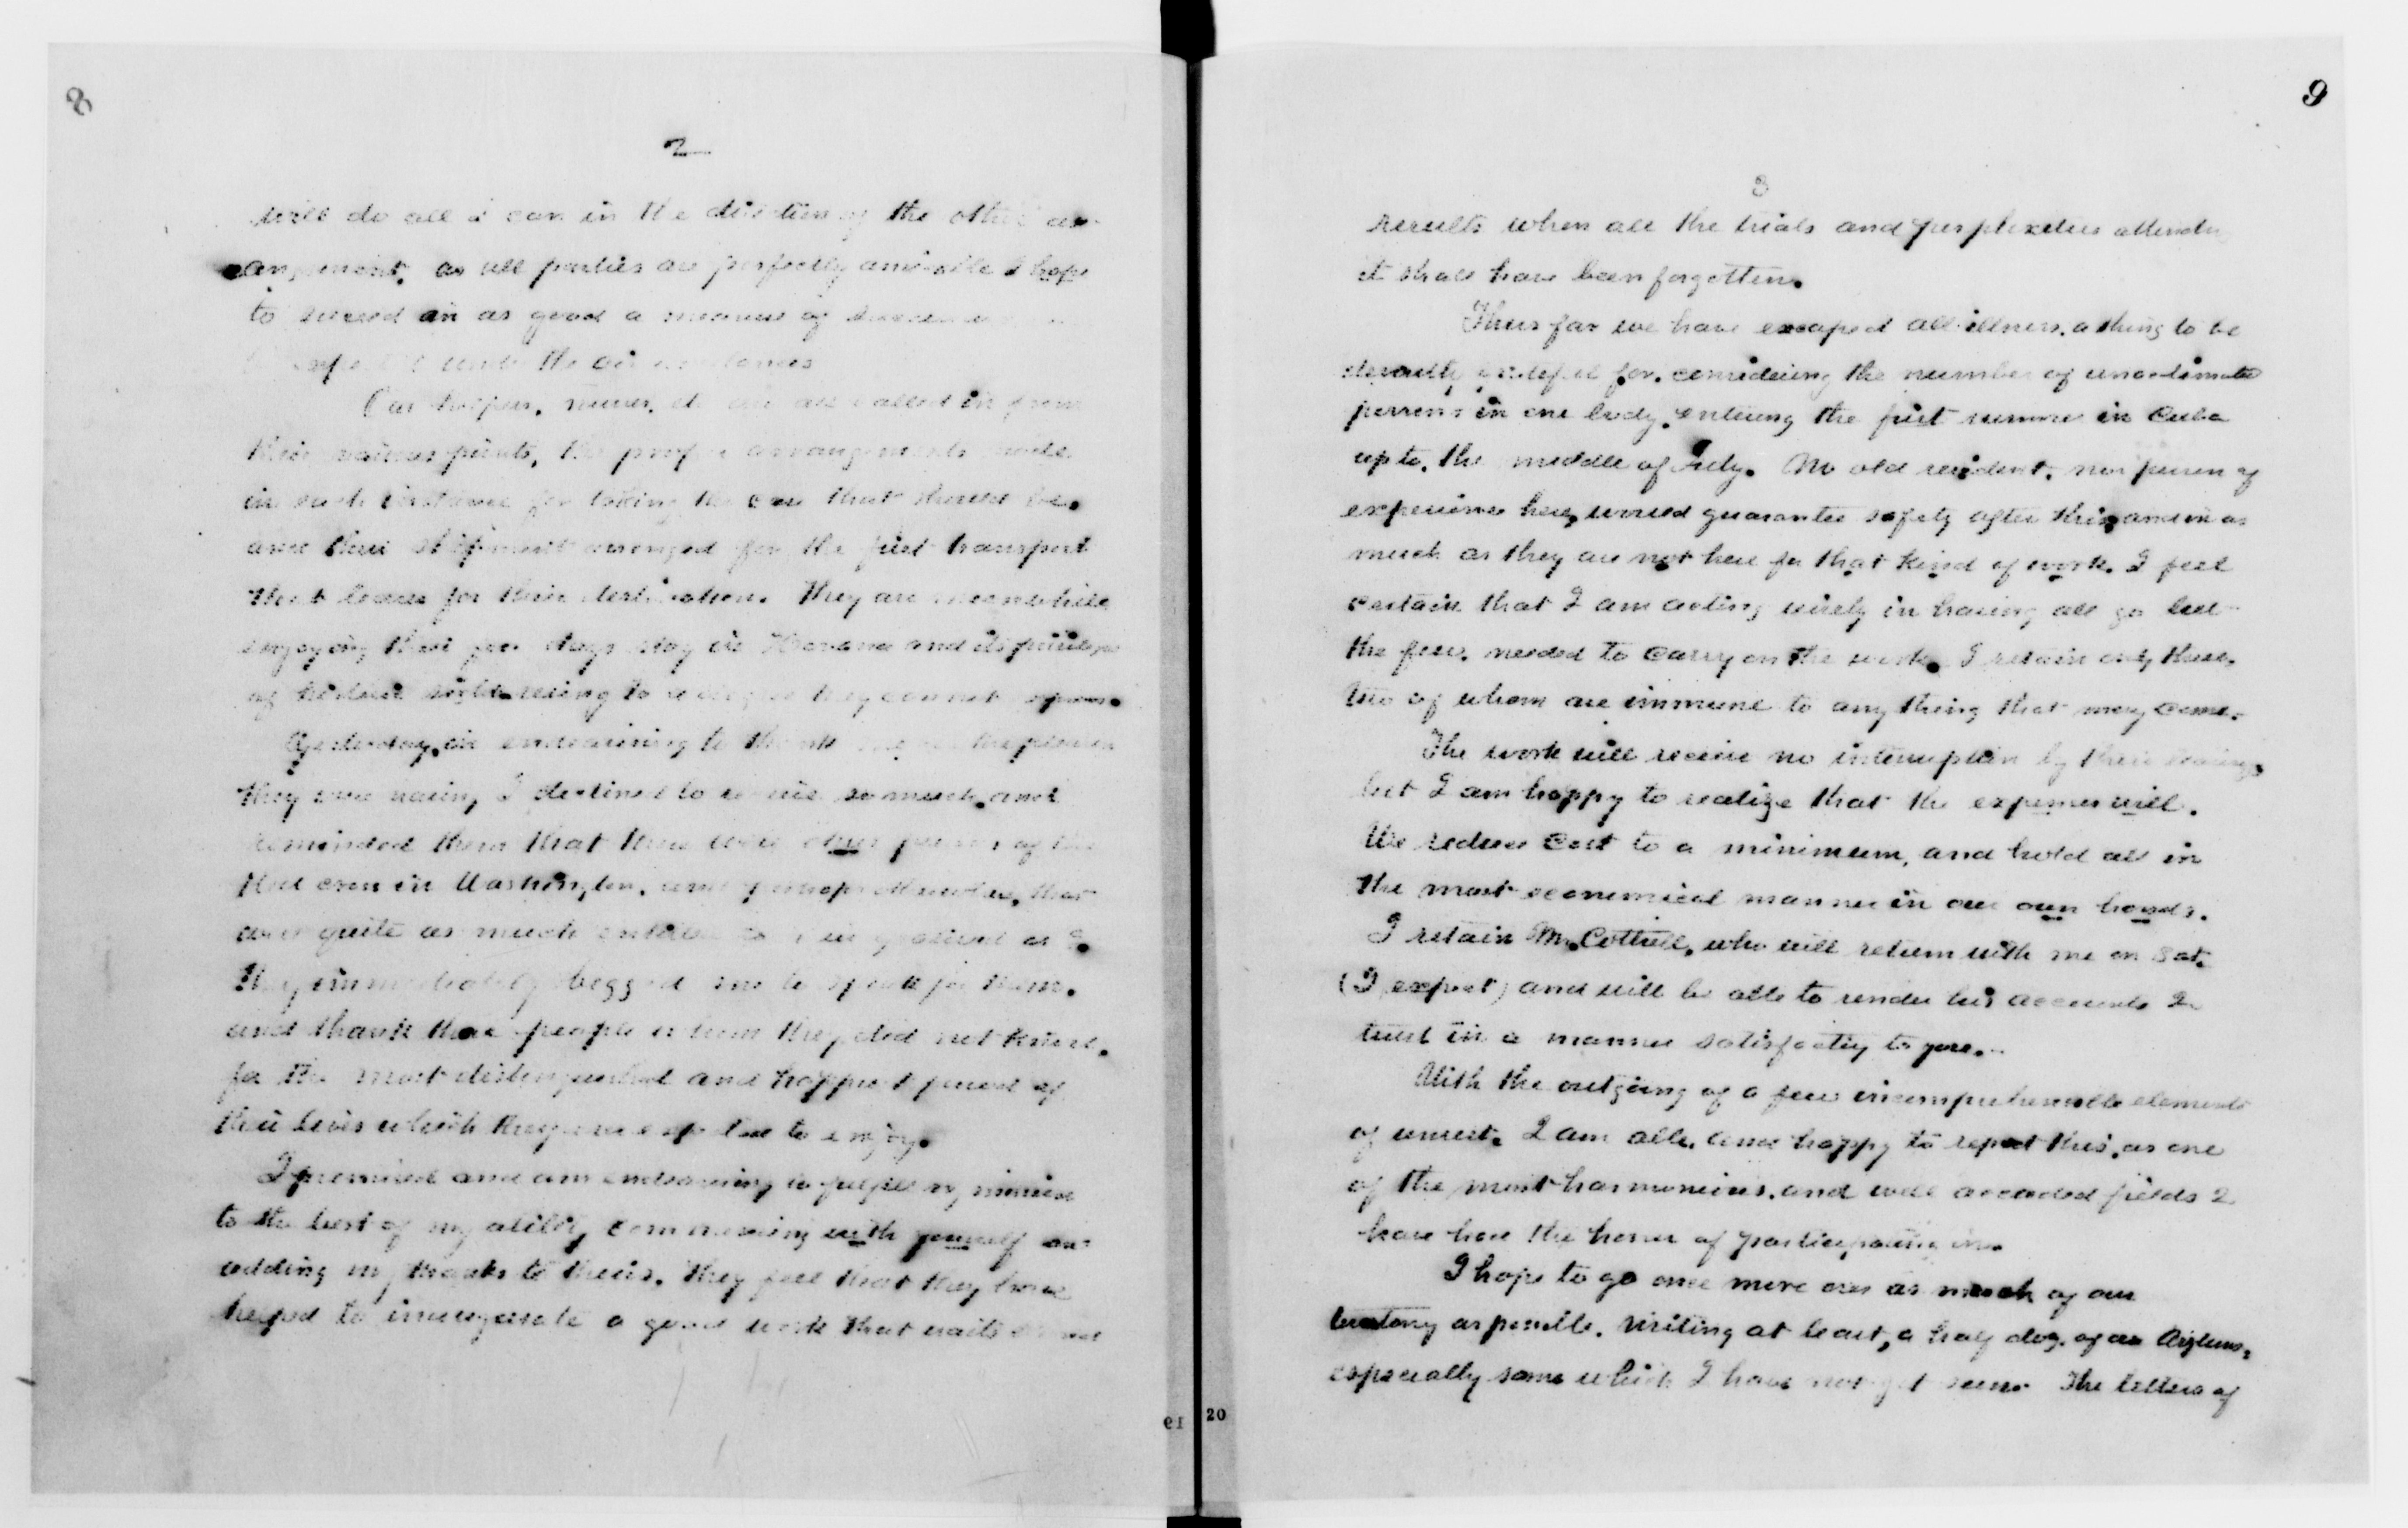 8
2
will do all I can in the direction of the other ar-
as all parties are perfectly amicable I hope
to succeed in as good a measure of
under the circumstances
Our helpers, nurses, are all called in from
their various points, the proper arrangements made
in each instance for taking the care that should be,
and their shipment arranged for the first transport
that leaves for their destination. They are meanwhile
enjoying their few days stay in Havana and its privileges
of sight seeing to a
Yesterday, in endeavoring to thank me for the pleasure
they were having I declined to receive so much, and
reminded them that there were other
that even in Washington, and perhaps that
were quite as much entitled to as I.
They immediately begged me to speak for them,
and thank those people whom they did not know,
for the most distinguished and happiest period of
their lives which they ever expected to enjoy.
I promised and am endeavoring to fulfil my mission
to the best of my ability, commencing with yourself and
adding my thanks to theirs. They feel that they have
helped to inaugurate a good work that waits
19
9
3
results when all the trials and perplexities attending
it shall have been forgotten.
Thus far we have escaped all illness, a thing to be
devoutly grateful for, considering the number of unacclimated
persons in one body, entering the first summer in Cuba
up to, the middle of July. No old resident, nor person of
experience here, would guarantee safety after this, and in as
much as they are not here for that kind of work, I feel
certain that I am acting wisely in having all go but
the few, needed to carry on the work. I retain only three,
two of whom are immune to any thing that may come.
The work will receive no interruption by their leaving,
but I am happy to realize that the expenses will.
We reduce cost to a minimum, and hold all in
the most economical manner in our own hands.
I retain Mr. Cottrell, who will return with me on Sat.
(I expect) and will be able to render his accounts I
trust in a manner satisfactory to you.
With the outgoing of a few incomprehensible elements
of unrest, I am able, and happy to report this, as one
of the most harmonious, and well accorded fields I
have had the honor of participating in.
I hope to go once more over as much of our
territory as possible, visiting at least, a half doz. of our Asylums,
especially some which I have not yet seen. The letters of
20